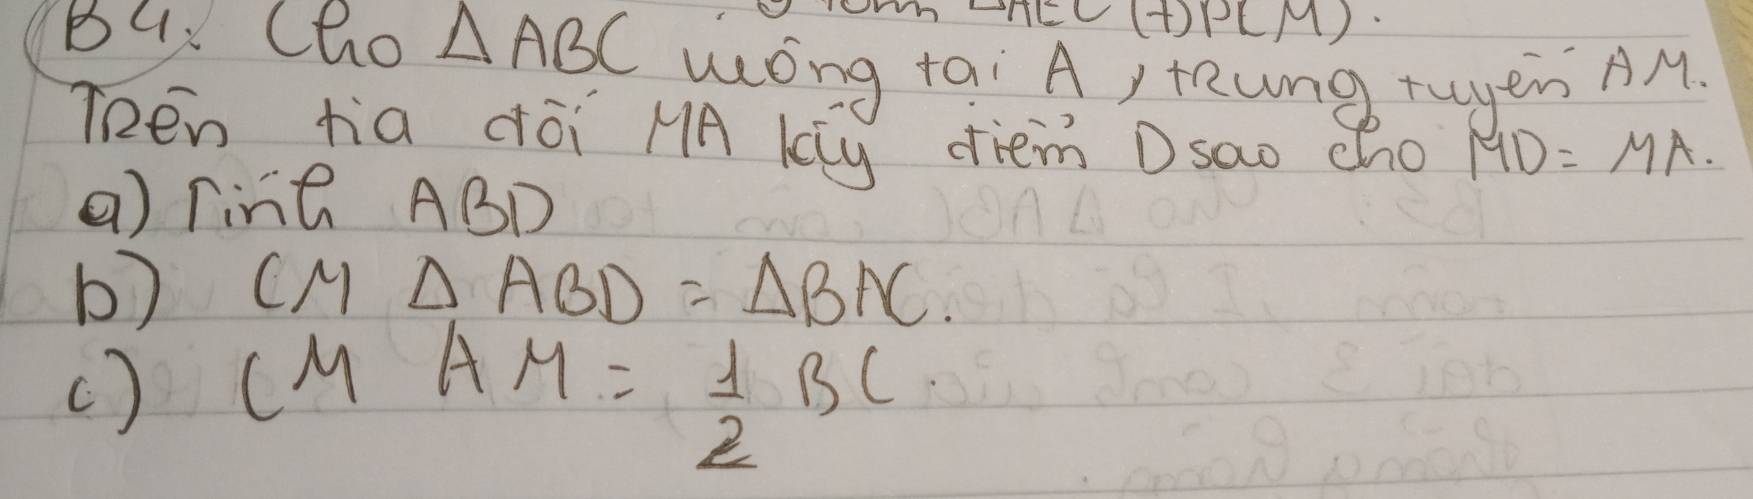 ΔAEC (+) P(M).
B4. Cho Δ ABC vuông tại A, trung tuyến AM.
Trên tia đối MA lấy điểm D sao cho MD = MA.
a) Tính ABD
b) CM Δ ABD = ΔBAC.
c) CM AM = 1/2 BC.